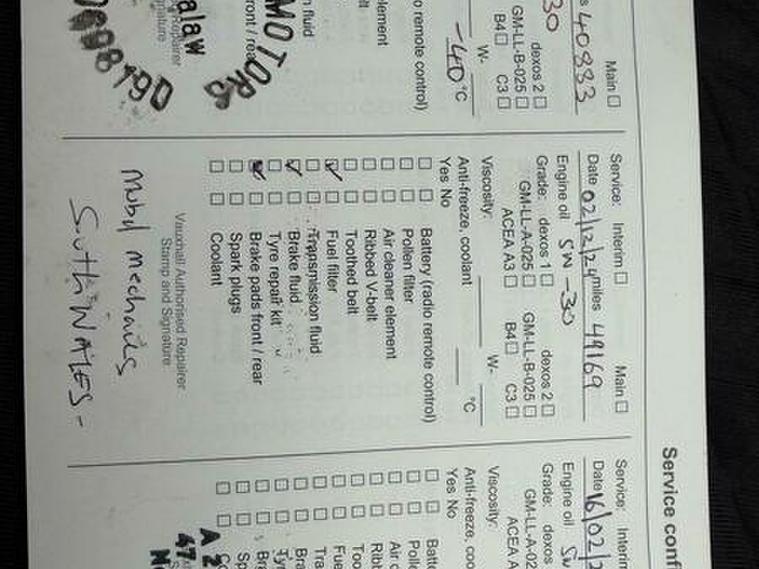 Service conf
40883
Main
30
dexos 2
GM-LL-B-025
B4 C3
W-
-40 °C
o remote control)
lement
lt
n fluid
ront / rear
Repairer
gnature
MOTO
alaw
Service: Interim Main
Date 02/12/24 miles 49169
Engine oil 5W-30
Grade: dexos 1 dexos 2
GM-LL-A-025 GM-LL-B-025
ACEA A3 B4 C3
Viscosity: W-
Anti-freeze, coolant °C
Yes No
Battery (radio remote control)
Pollen filter
Air cleaner element
Ribbed V-belt
Toothed belt
Fuel filter
Transmission fluid
Brake fluid
Tyre repair kit
Brake pads front / rear
Spark plugs
Coolant
Vauxhall Authorised Repairer
Stamp and Signature
Mobil mechanics
South WALES-
Service: Interim
Date 16/02/2
Engine oil 5w
Grade: dexos
GM-LL-A-02
ACEA A
Viscosity:
Anti-freeze, coo
Yes No
Batte
Polle
Air c
Ribb
Too
Fue
Tra
Bra
Tyr
Bra
Sp
Co